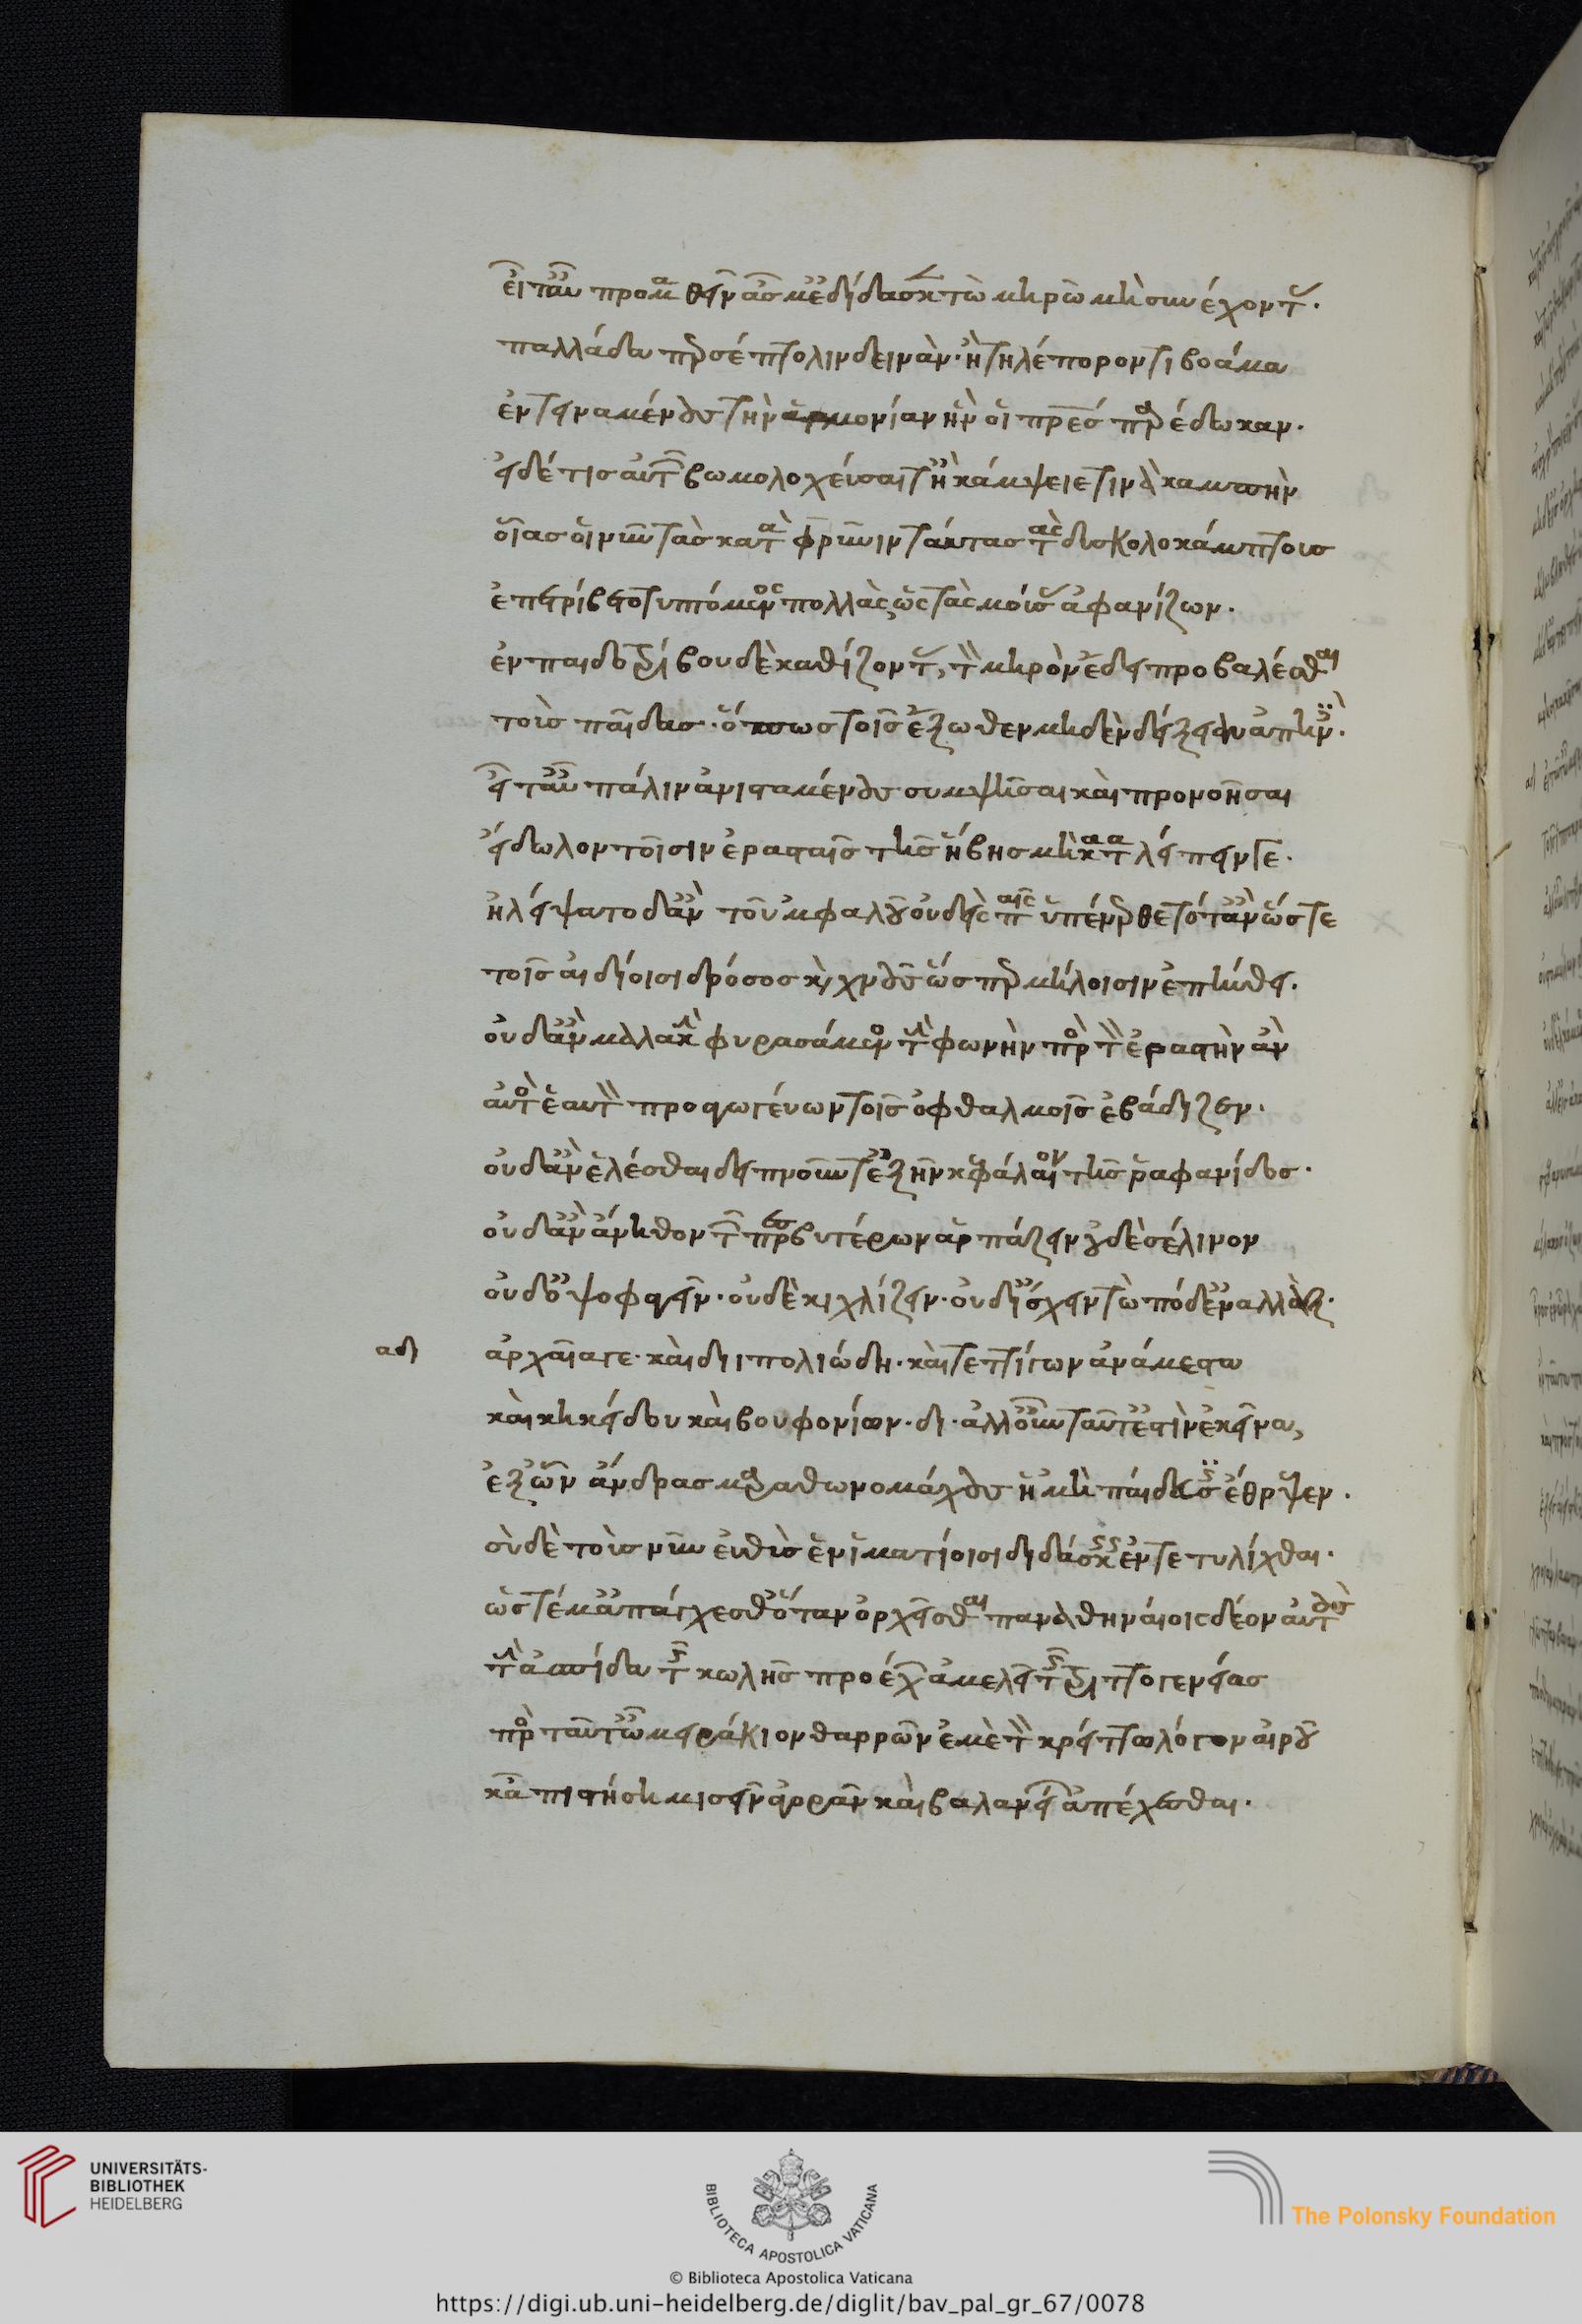 εἶτ' αὖ προμαθεῖν ᾆσμ' ἐδίδασκεν τὼ μηρὼ μὴ συνέχοντας·
παλλάδα περσέπτολιν δεινὰν· ἢ τηλέπορόν τι βόαμα
ἐντειναμένους τὴν ἁρμονίαν ἣν οἱ πρ̅ε̅ς παρέδωκαν·
εἰ δέ τις αὐτῶν βωμολοχεύσαιτ' ἢ κάμψειέ τινα καμπὴν
οἵας οἱ νῦν τὰς κατὰ φρῦνιν ταύτας τὰς δυσκολοκάμπτους
ἐπετρίβετο τυπτόμενος πολλὰς ὡς τὰς μούσας ἀφανίζων·
ἐν παιδοτρίβου δὲ καθίζοντας, τὸν μηρὸν ἔδει προβαλέσθαι
τοὺς παῖδας· ὅπως τοῖς ἔξωθεν μηδὲν δείξειαν ἀπηνές·
εἶτ' αὖ πάλιν ἀνισταμένους συμψῆσαι καὶ προνοῆσαι
εἴδωλον τοῖσιν ἐρασταῖς τῆς ἥβης μὴ καταλείπειν γε·
ἠλείψατο δ' ἂν τοὐμφαλοῦ οὐδεὶς παῖς ὑπένερθε τότ' ἂν ὥστε
τοῖς αἰδοίοισι δρόσος καὶ χνοῦς ὥσπερ μήλοισιν ἐπήνθει·
οὐδ' ἂν μαλακὴν φυρασάμενος τὴν φωνὴν πρὸς τὸν ἐραστὴν ἂν
αὐτὸς ἑαυτὸν προαγωγεύων τοῖς ὀφθαλμοῖς ἐβάδιζεν·
οὐδ' ἂν ἑλέσθαι δειπνοῦντ' ἐξῆν κεφάλαιον τῆς ῥαφανίδος·
οὐδ' ἂν ἄνηθον τῶν πρεσβυτέρων ἁρπάζειν οὐδὲ σέλινον
οὐδ' ὀψοφαγεῖν· οὐδὲ κιχλίζειν· οὐδ' ἴσχειν τὼ πόδ' ἐναλλάξ·
αδι ἀρχαῖά γε· καὶ διιπολιώδη· καὶ τεττίγων ἀνάμεστα
καὶ κηκείδου καὶ βουφονίων· δι· ἀλλ' οὖν ταῦτ' ἐστὶν ἐκεῖνα,
ἐξ ὧν ἄνδρας μαραθωνομάχους ἡμὴ παίδευσις ἔθρεψεν·
σὺ δὲ τοὺς νῦν εὐθὺς ἐν ἱματίοισι διδάσκεις ἐντετυλίχθαι·
ὥστέ μ' ἀπάγχεσθ' ὅταν ὀρχεῖσθαι παναθηναίοις δέον αὐτοὺς
τὴν ἀσπίδα τῆς κωλῆς προέχων ἀμελεῖ τῆς τριττογενείας
πρὸς ταῦτ' ὦ μειράκιον θαρρῶν ἐμὲ τὸν κρείττω λόγον αἱροῦ
κἀπιστήσῃ μισεῖν ἀγορὰν καὶ βαλανείων ἀπέχεσθαι·
UNIVERSITÄTS-
BIBLIOTHEK
HEIDELBERG
BIBLIOTECA APOSTOLICA VATICANA
The Polonsky Foundation
© Biblioteca Apostolica Vaticana
https://digi.ub.uni-heidelberg.de/diglit/bav_pal_gr_67/0078